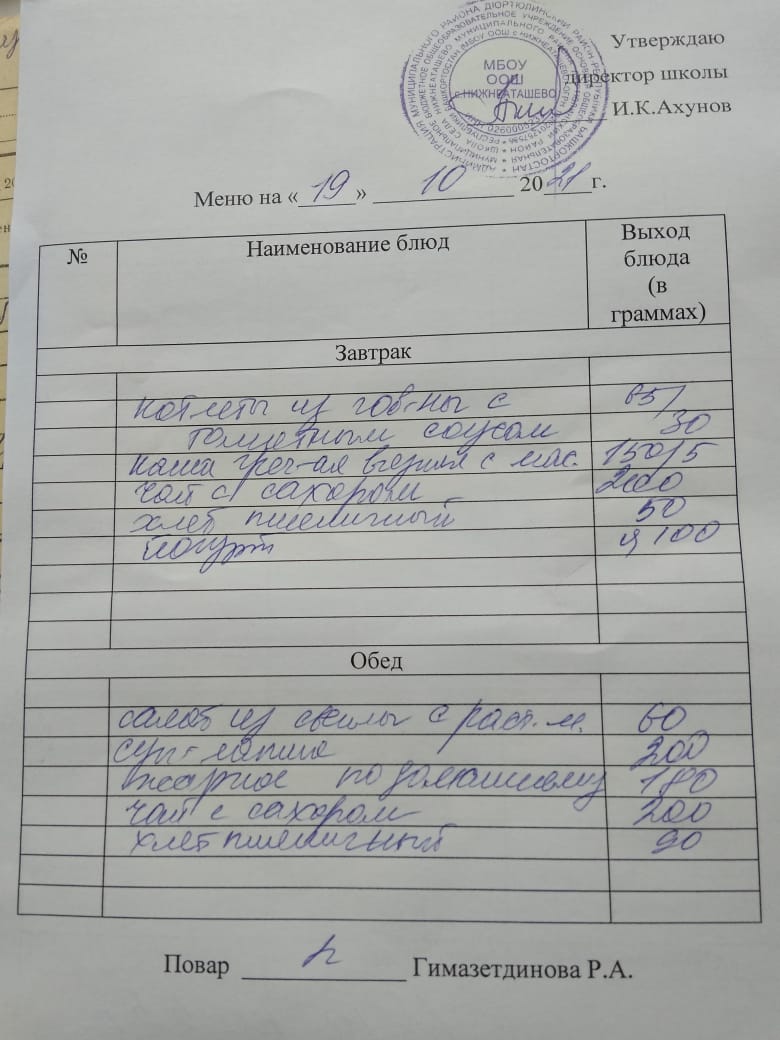 Утверждаю
директор школы
И.К.Ахунов
МБОУ
ООШ
с НИЖНЕАТАШЕВО
Меню на «19» 10 2021г.
№ Наименование блюд Выход
блюда
(в
граммах)
Завтрак
котлеты из гов-ны с 65/
томатным соусом 30
каша греч-ая вязкая с мас. 150/5
чай с сахаром 200
хлеб пшеничный 50
йогурт 100
Обед
салат из свеклы с раст.м. 60
суп-лапша 200
жаркое по домашнему 180
чай с сахаром 200
хлеб пшеничный 90
Повар Гимазетдинова Р.А.